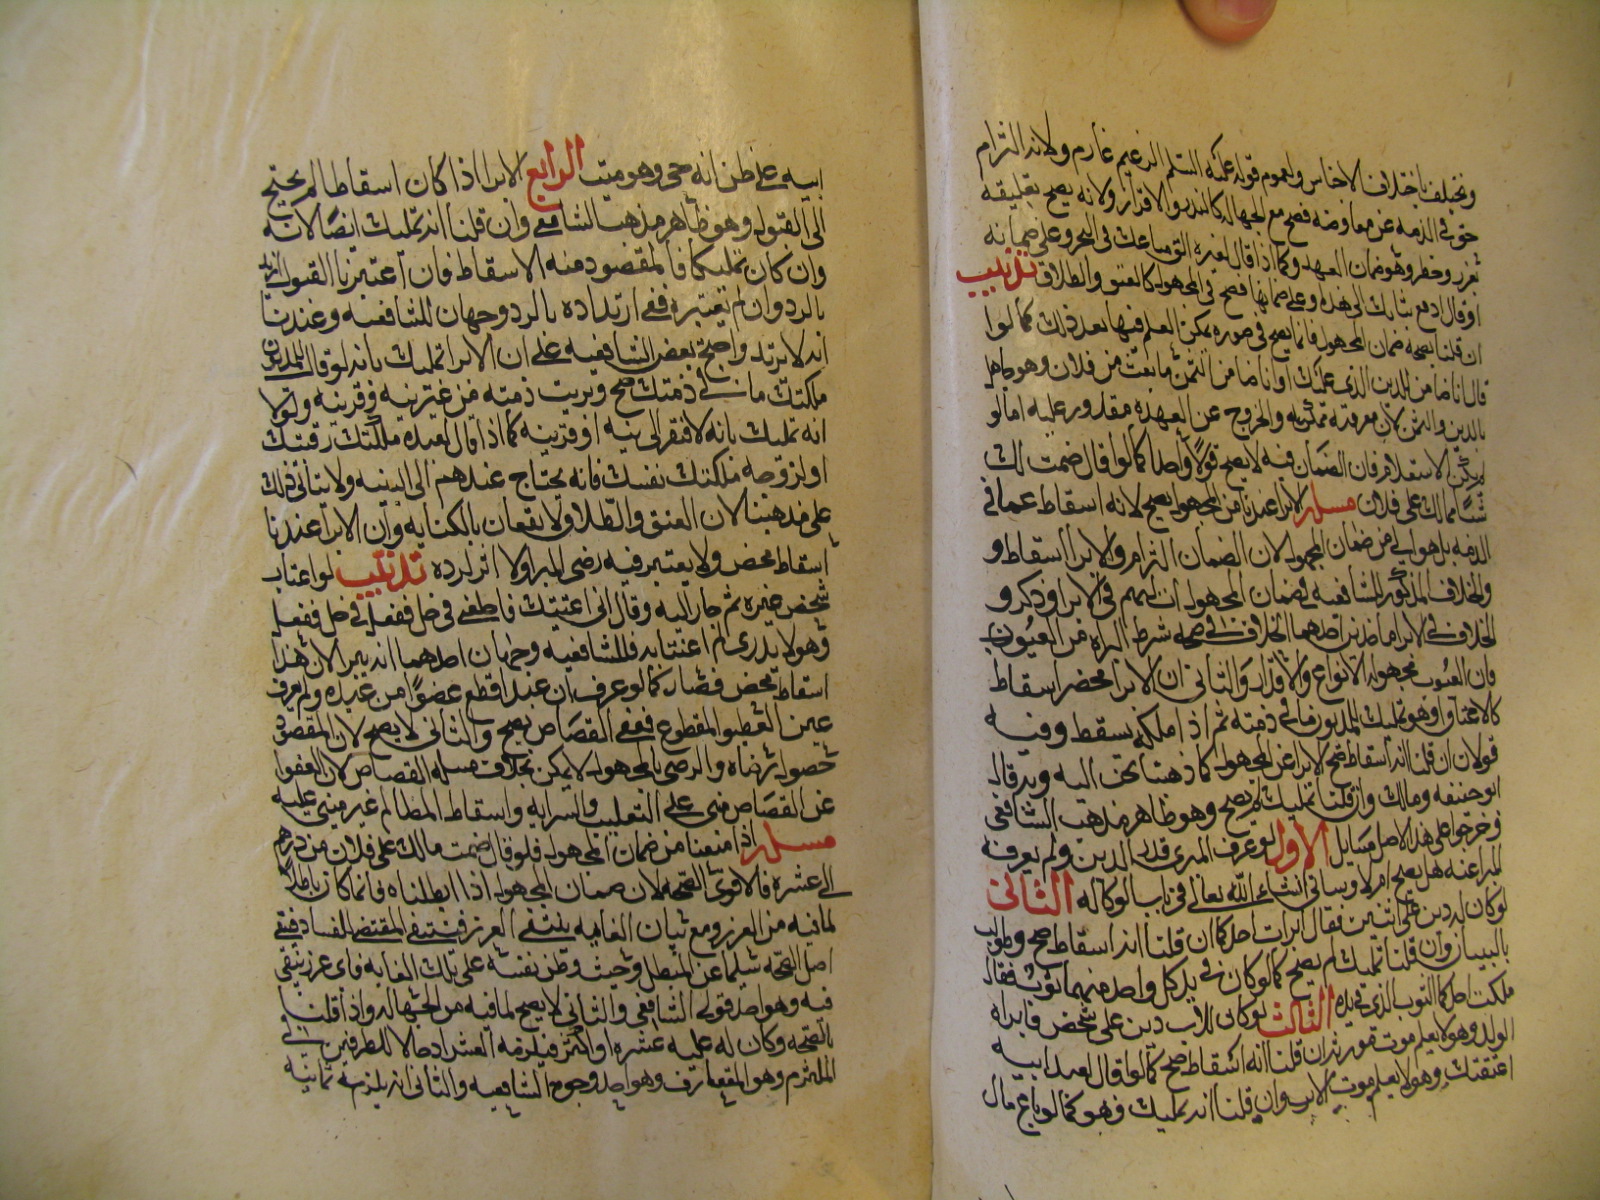 ويختلف باختلاف الاجناس ولعموم قوله عليه السلم الزعيم غارم ولانه التزام
حق في الذمة عن معاوضة فصح مع الجهالة كالنذر والاقرار ولانه يصح تعليقه
بغرر وخطر وهو ضمان العهدة وكما اذا قال لغيره الق متاعك في البحر وعلي ضمانه
او قال ادفع ثيابك الى هذه وعلي ضمانها فصح في المجهول كالعتق والطلاق تذنيب
ان قلنا بصحة ضمان المجهول فانما يصح في صورة يمكن العلم فيها بعد ذلك كما لوا
قال انا ضامن للدين الذى عليك او انا ضامن لثمن ما بعت من فلان وهو جاهل
بالدين والثمن لان معرفته ممكنة والخروج عن العهدة مقدور عليه اما لو
لم يمكن الاستعلام فان الضمان فيه لا يصح قولا واحدا كما لوا قال ضمنت لك
شيئا مما لك على فلان مسلة الابرا عندنا من المجهول يصح لانه اسقاط عما في
الذمة بل هو اولى من ضمان المجهول لان الضمان التزام والابرا اسقاط و
والخلاف المذكور للشافعية في ضمان المجهول ات لهم في الابرا وذكر و
للخلاف في الابرا ماخذين احدهما الخلاف في صحة شرط البراة من العيوب
فان العيوب مجهولة الانواع والاقدار والثاني ان الابرا محض اسقاط
كالاعتاق او هو تمليك للمديون ما في ذمته ثم اذا ملكه يسقط وفيه
قولان ان قلنا انه اسقاط صح الابرا عن المجهول كما ذهبنا نحن اليه وبه قال
ابو حنيفه ومالك وان قلنا تمليك لم يصح وهو ظاهر مذهب الشافعي
وخرجوا على هذا الاصل مسايل الاول لو عرف المبرى قدر الدين ولم يعرفه
المبرا عنه هل يصح ام لا وسياتي انشاء الله تعالى في باب الوكالة الثاني
لو كان له دين على اثنين فقال ابرات احدكما ان قلنا انه اسقاط صح وطولب
بالبيان وان قلنا تمليك لم يصح كما لو كان في يد كل واحد منهما ثوب فقال
ملكت احدكما الثوب الذى في يده الثالث لو كان للاب دين على شخص فابراه
الولد وهو لا يعلم موت مورثه ان قلنا انه اسقاط صح كما لوا قال لعبد ابيه
اعتقتك وهو لا يعلم موت الاب وان قلنا انه تمليك فهو كما لو باع مال
ابيه على ظن انه حي وهو ميت الرابع الابرا اذا كان اسقاطا لم يحتج
الى القبول وهو ظاهر مذهب الشافعي وان قلنا انه تمليك ايضا لانه
وان كان تمليكا فالمقصود منه الاسقاط فان اعتبرنا القبول ارتد
بالرد وان لم نعتبره ففي ارتداده بالرد وجهان للشافعية وعندنا
انه لا يرتد واحتج بعض الشافعية على ان الابرا تمليك بانه لو قال للمديون
ملكتك ما في ذمتك صح وبريت ذمته من غير نية وقرينه ولولا
انه تمليك بانه لافتقر الى نية او قرينه كما اذا قال لعبده ملكتك رقبتك
او لزوجته ملكتك نفسك فانه يحتاج عندهم الى النية ولا يتاتى ذلك
على مذهبنا لان العتق والطلاق لا يقعان بالكناية وان الابرا عندنا
اسقاط محض ولا يعتبر فيه رضى المبرا ولا اثر لرده تذنيب لو اغتاب
شخص غيره ثم جا اليه وقال اني اغتبتك فاجعلني في حل ففعل
وهو لا يدرى بم اغتابه فللشافعية وجهان احدهما انه يبرا لان هذا
اسقاط محض فصار كما لو عرف ان عبدا قطع عضوا من عبده ولم يعرف
عين العضو المقطوع فعفى القصاص يصح والثاني لا يصح لان المقصود
حصول رضاه والرضى بالمجهول لا يمكن بخلاف مسلة القصاص لان العفوا
عن القصاص مبني على التغليب والسراية واسقاط المظالم غير مبني عليه
مسلة اذا منعنا من ضمان المجهول فلو قال ضمنت مالك على فلان من درهم
الى عشرة فالاقوى الصحة لان ضمان المجهول اذا ابطلناه فانما كان باطلا
لما فيه من الغرر ومع بيان الغاية ينتفي الغرر فينتفي المقتضى للفساد فيبقى
اصل الصحة سليما عن المبطل وحيث وطن نفسه على تلك الغاية فاى غرر يبقى
فيه وهو احد قولي الشافعي والثاني لا يصح لما فيه من الجهالة واذا قلنا
بالصحة وكان له عليه عشرة او اكثر فيلزمه العشرة ادخالا للطرفين في
الملتزم وهو المتعارف وهو احد وجوه الشافعية والثاني انه يلزمه ثمانية